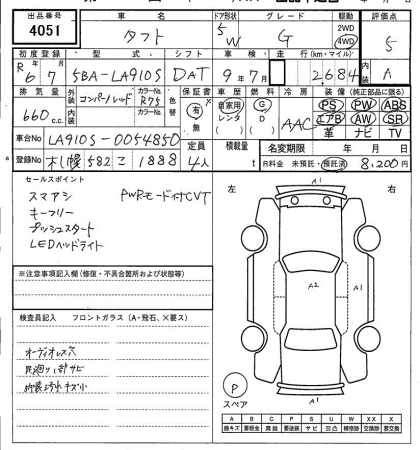 出品番号 車名 ドア形状 グレード 駆動 評価点
4051 タフト 5W G 2WD 4WD 5
初度登録 型式 シフト 車検 走行(km・マイル) 内装
R6年7月 5BA-LA910S DAT 9年7月 2,684 A
排気量 外装 コンパーノレッド カラーNo. R75 色替 保証書 車歴 燃料 冷房 装備(純正部品に限る)
660c.c. 内装 カラーNo. 有 無 自家用 レンタ ( ) G D ( ) AAC PS PW ABS
エアB AW SR
革 ナビ TV
車台No LA910S-0054850 定員 積載量 名変期限 年 月 日
登録No 札幌 582 こ 1888 4人 t R料金 未預託・預託済 8,200円
セールスポイント
スマアシ PWRモード付CVT
キーフリー
プッシュスタート
LEDヘッドライト
※注意事項記入欄(修復・不具合箇所および状態等)
検査員記入 フロントガラス(A・飛石、×要ス)
オーディオレス穴
足廻り一部サビ
左 右
A1
A2
A1
A1
P
スペア
A B C P S U W X XX
線キズ 要板金 腐蝕 要塗装 サビ 凹凸 補修跡 要交換 交換跡